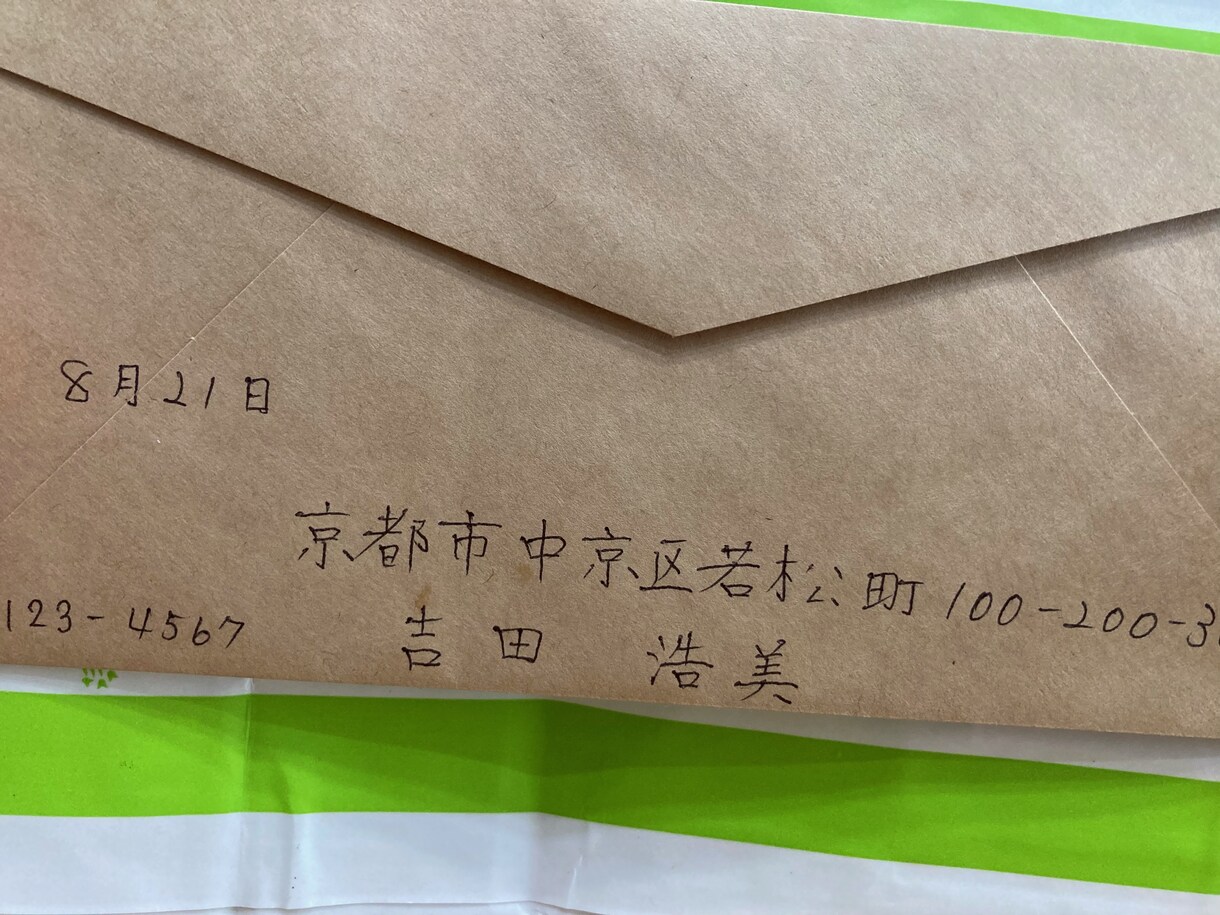 8月21日
京都市中京区若松町100-200-3
123-4567
吉田 浩美